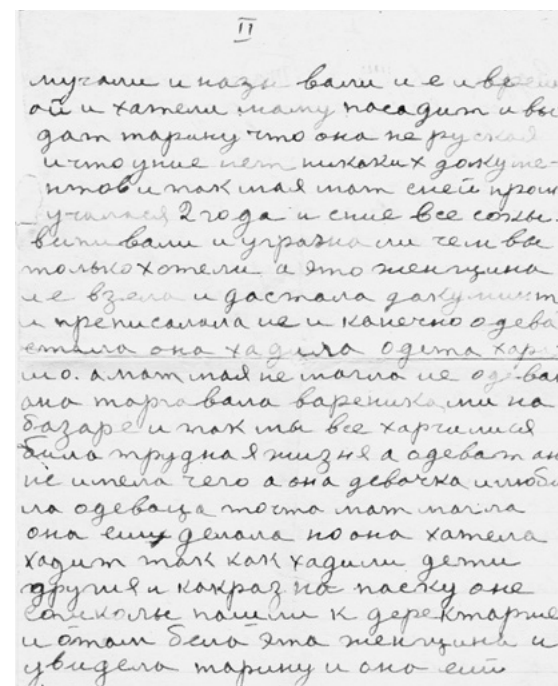 II
мучали и назы вали и е и врей
ой и хатели маму пасадит и вы
дат тарину что она не руская
и что уние нет никаких докуме-
нтов и так мая мат сней прам
училася 2 года и сние все сокы
випивали и угражали чем вы
только хотели а это женщина
ие взела и дастала дакумінт
и преписалала ие и канечно одева
стала она хадила одета хара
шо. а мат мая не магла ие одеват
она таргавала варениками на
базаре и так мы все харчилися
била трудная жизня а одеват ан
не имела чего а она девачка и люби
ла одеваца точто мат магла
она ещу делала но она хатела
хадит так как хадили дети
другия и какраз на паску оне
сошколы пашли к деректарше
и отам бела эта женщина и
увидела тарину и она ещі